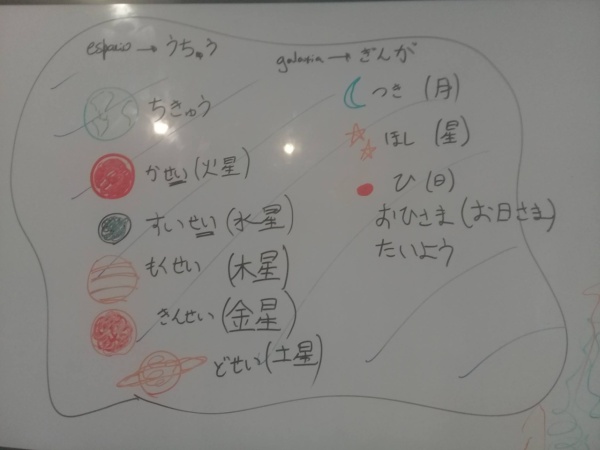 espacio → うちゅう
galaxia → ぎんが
ちきゅう
かせい (火星)
すいせい (水星)
もくせい (木星)
きんせい (金星)
どせい (土星)
つき (月)
ほし (星)
ひ (日)
おひさま (お日さま)
たいよう